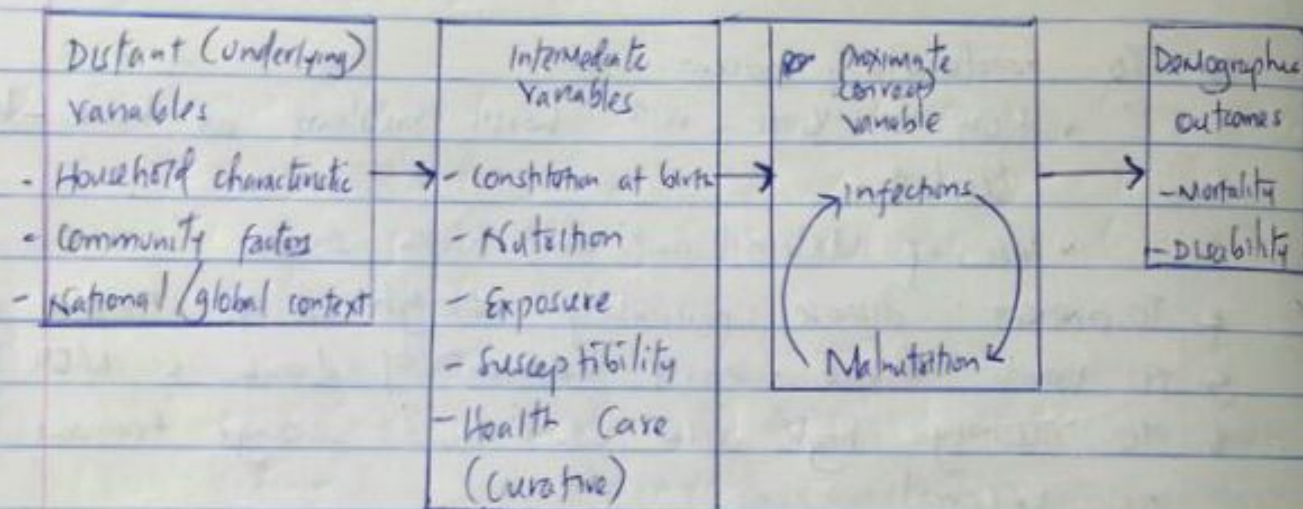 Distant (underlying)
variables
- Household characteristic
- community factors
- National/global context
Intermediate
variables
- Constitution at birth
- Nutrition
- Exposure
- Susceptibility
- Health Care
(curative)
proximate
variable
Infections
Malnutrition
Demographic
outcomes
- Mortality
- Disability